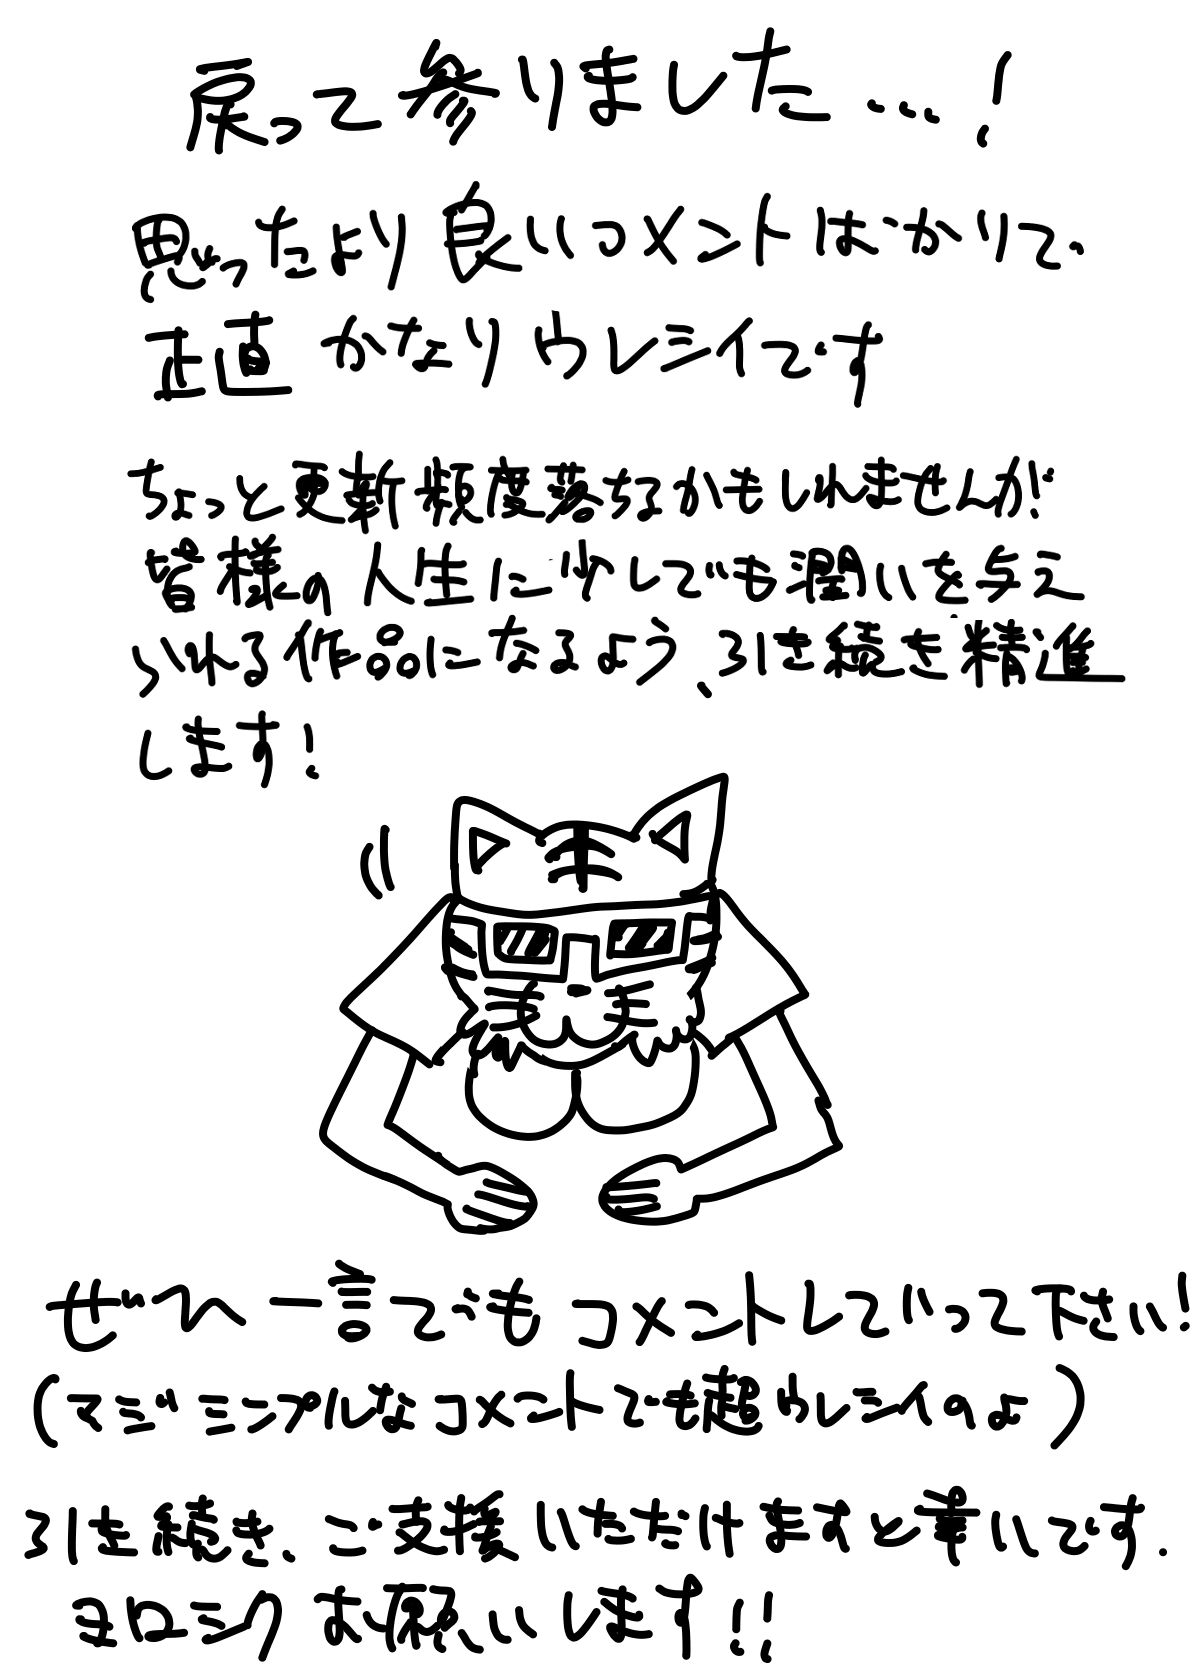 戻って参りました…!
思ったより良いコメントばかりで
正直かなりウレシイです
ちょっと更新頻度落ちるかもしれませんが
皆様の人生に少しでも潤いを与え
られる作品になるよう、引き続き精進
します!
ぜひ一言でもコメントしていって下さい!
(マジシンプルなコメントでも超ウレシイのよ)
引き続き、ご支援いただけますと幸いです.
ヨロシクお願いします!!